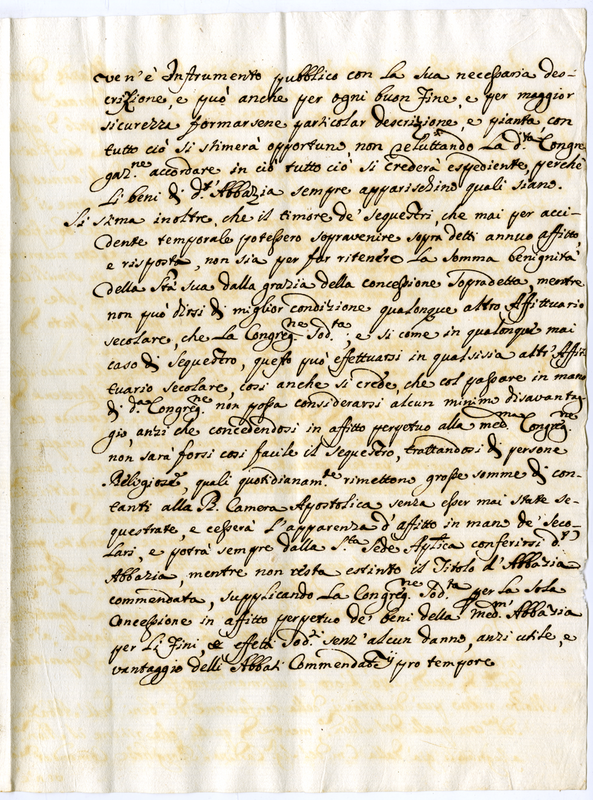 ven'è Instrumento pubblico con la sua necessaria des=
crizione, e può anche per ogni buon fine, e per maggior
sicurezza formarsene particolar descrizione, e pianta con
tutto ciò si stimerà opportuno non reluttando la d.ta Congre
gaz.ne accordare in ciò tutto ciò si crederà espediente, perchè
li beni di d.ta Abbazia sempre apparischino quali siano.
Si stima inoltre, che il timore de' sequestri, che mai per acci=
dente temporale potessero sopravenire sopra detti annuo affitto,
e risposta, non sia per far ritenere la somma benignità
della S.tà Sua dalla grazia della concessione sopradetta, mentre
non può dirsi di miglior condizione qualonque altro Affittuario
secolare, che la Congreg.ne sod.ta; e si come in qualonque mai
caso di sequestro, questo può effettuarsi in qualsisia altr' Affit
tuario secolare, cosi anche si crede, che col passare in mano
di d.ta Congreg.ne non possa considerarsi alcun minimo disavanta
gio, anzi che concedendosi in affitto perpetuo alla med.ma Congreg.ne
non sarà forsi cosi facile il sequestro, trattandosi di persone
Religiose, quali quotidianam.te rimettono grosse somme di con=
tanti alla R. Camera Apostolica senza esser mai state se=
questrate, e cesserà l'apparenza d'affitto in mano de' seco=
lari, e potrà sempre dalla S.ta Sede Aplica conferirsi d.a
Abbazia, mentre non resta estinto il Titolo d'Abbazia
commendata, supplicando la Congreg.ne sod.ta per la sola
concessione in affitto perpetuo de' beni della med.ma Abbazia
per li fini, et effetti sod.i senz'alcun danno, anzi utile, e
vantaggio delli Abbati Commendat.ij pro tempore